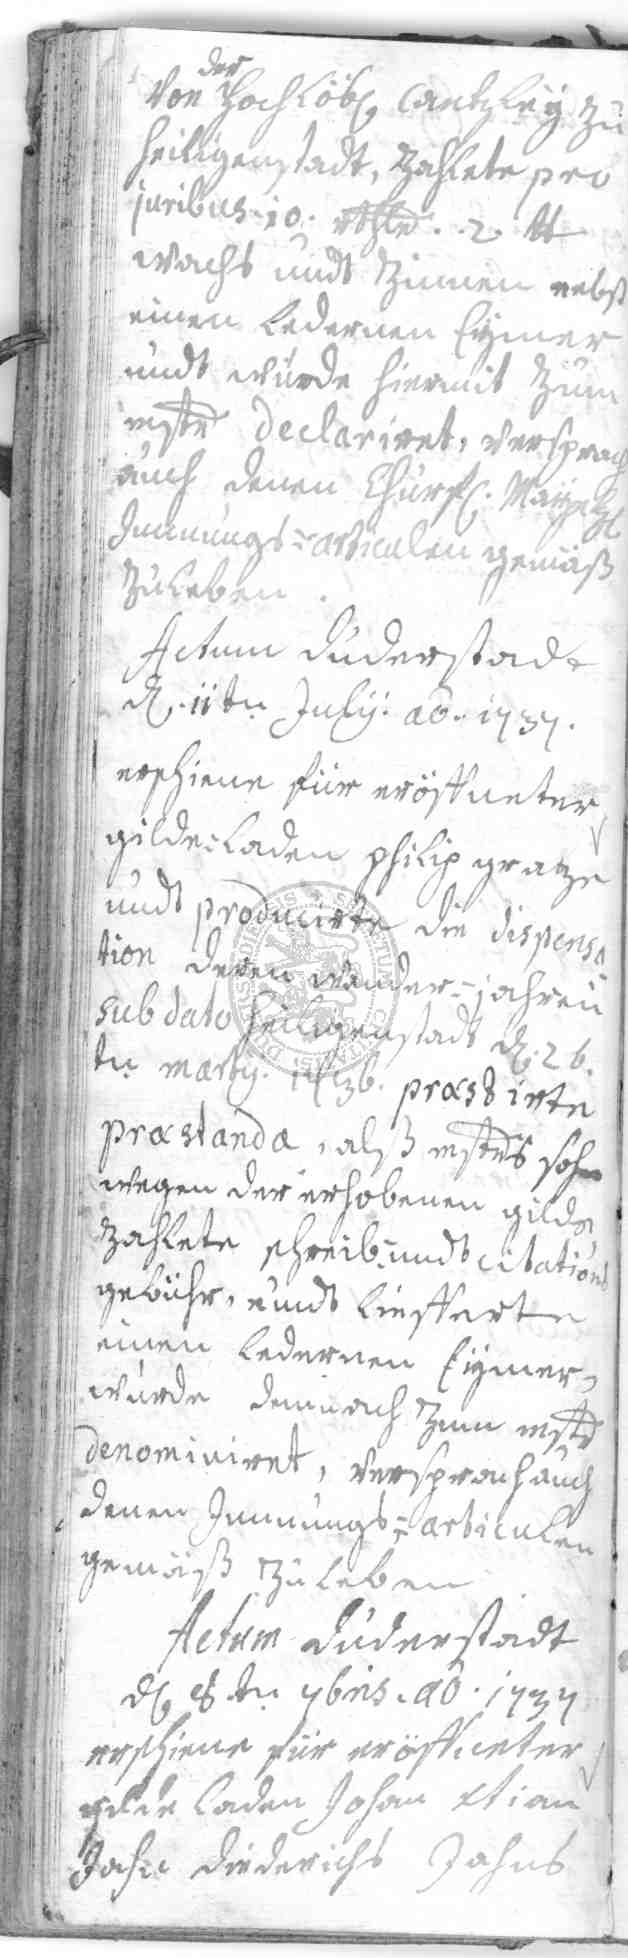 der
Von Hochlöbl. Cantzleÿ zu
Heiligenstadt, zahlete pro
juribus 10. rthlr. 2. lb
wachs undt Zinnen nebst
einen Ledernen Eÿmer
undt wurde hiermit zum
mstr declariret, versprach
auch denen Churfl. Mäyntzl
Innungs=articulen gemäß
zu leben.
Actum Duderstadt
d. 11tn Julÿ. aō. 1737.
erschiene für eröffneter
gilde-Laden philip gratze
undt producirte die dispensa
tion deren wander=jahren
sub dato Heiligenstadt d. 26.
tn martÿ. 1736. præstirte
præstanda, alß mstrs sohn
wegen der erhobenen gilde
zahlete schreib undt citations
gebühr, undt lieffferte
einen Ledernen Eÿmer,
wurde demnach zum mstr
denominiret, versprach auch
denen Innungs=articulen
gemäß zu leben
Actum Duderstadt
d 8tn 7bris. aō. 1737
erschiene für eröffneter
gilde Laden Johan
Diederichs Jahns